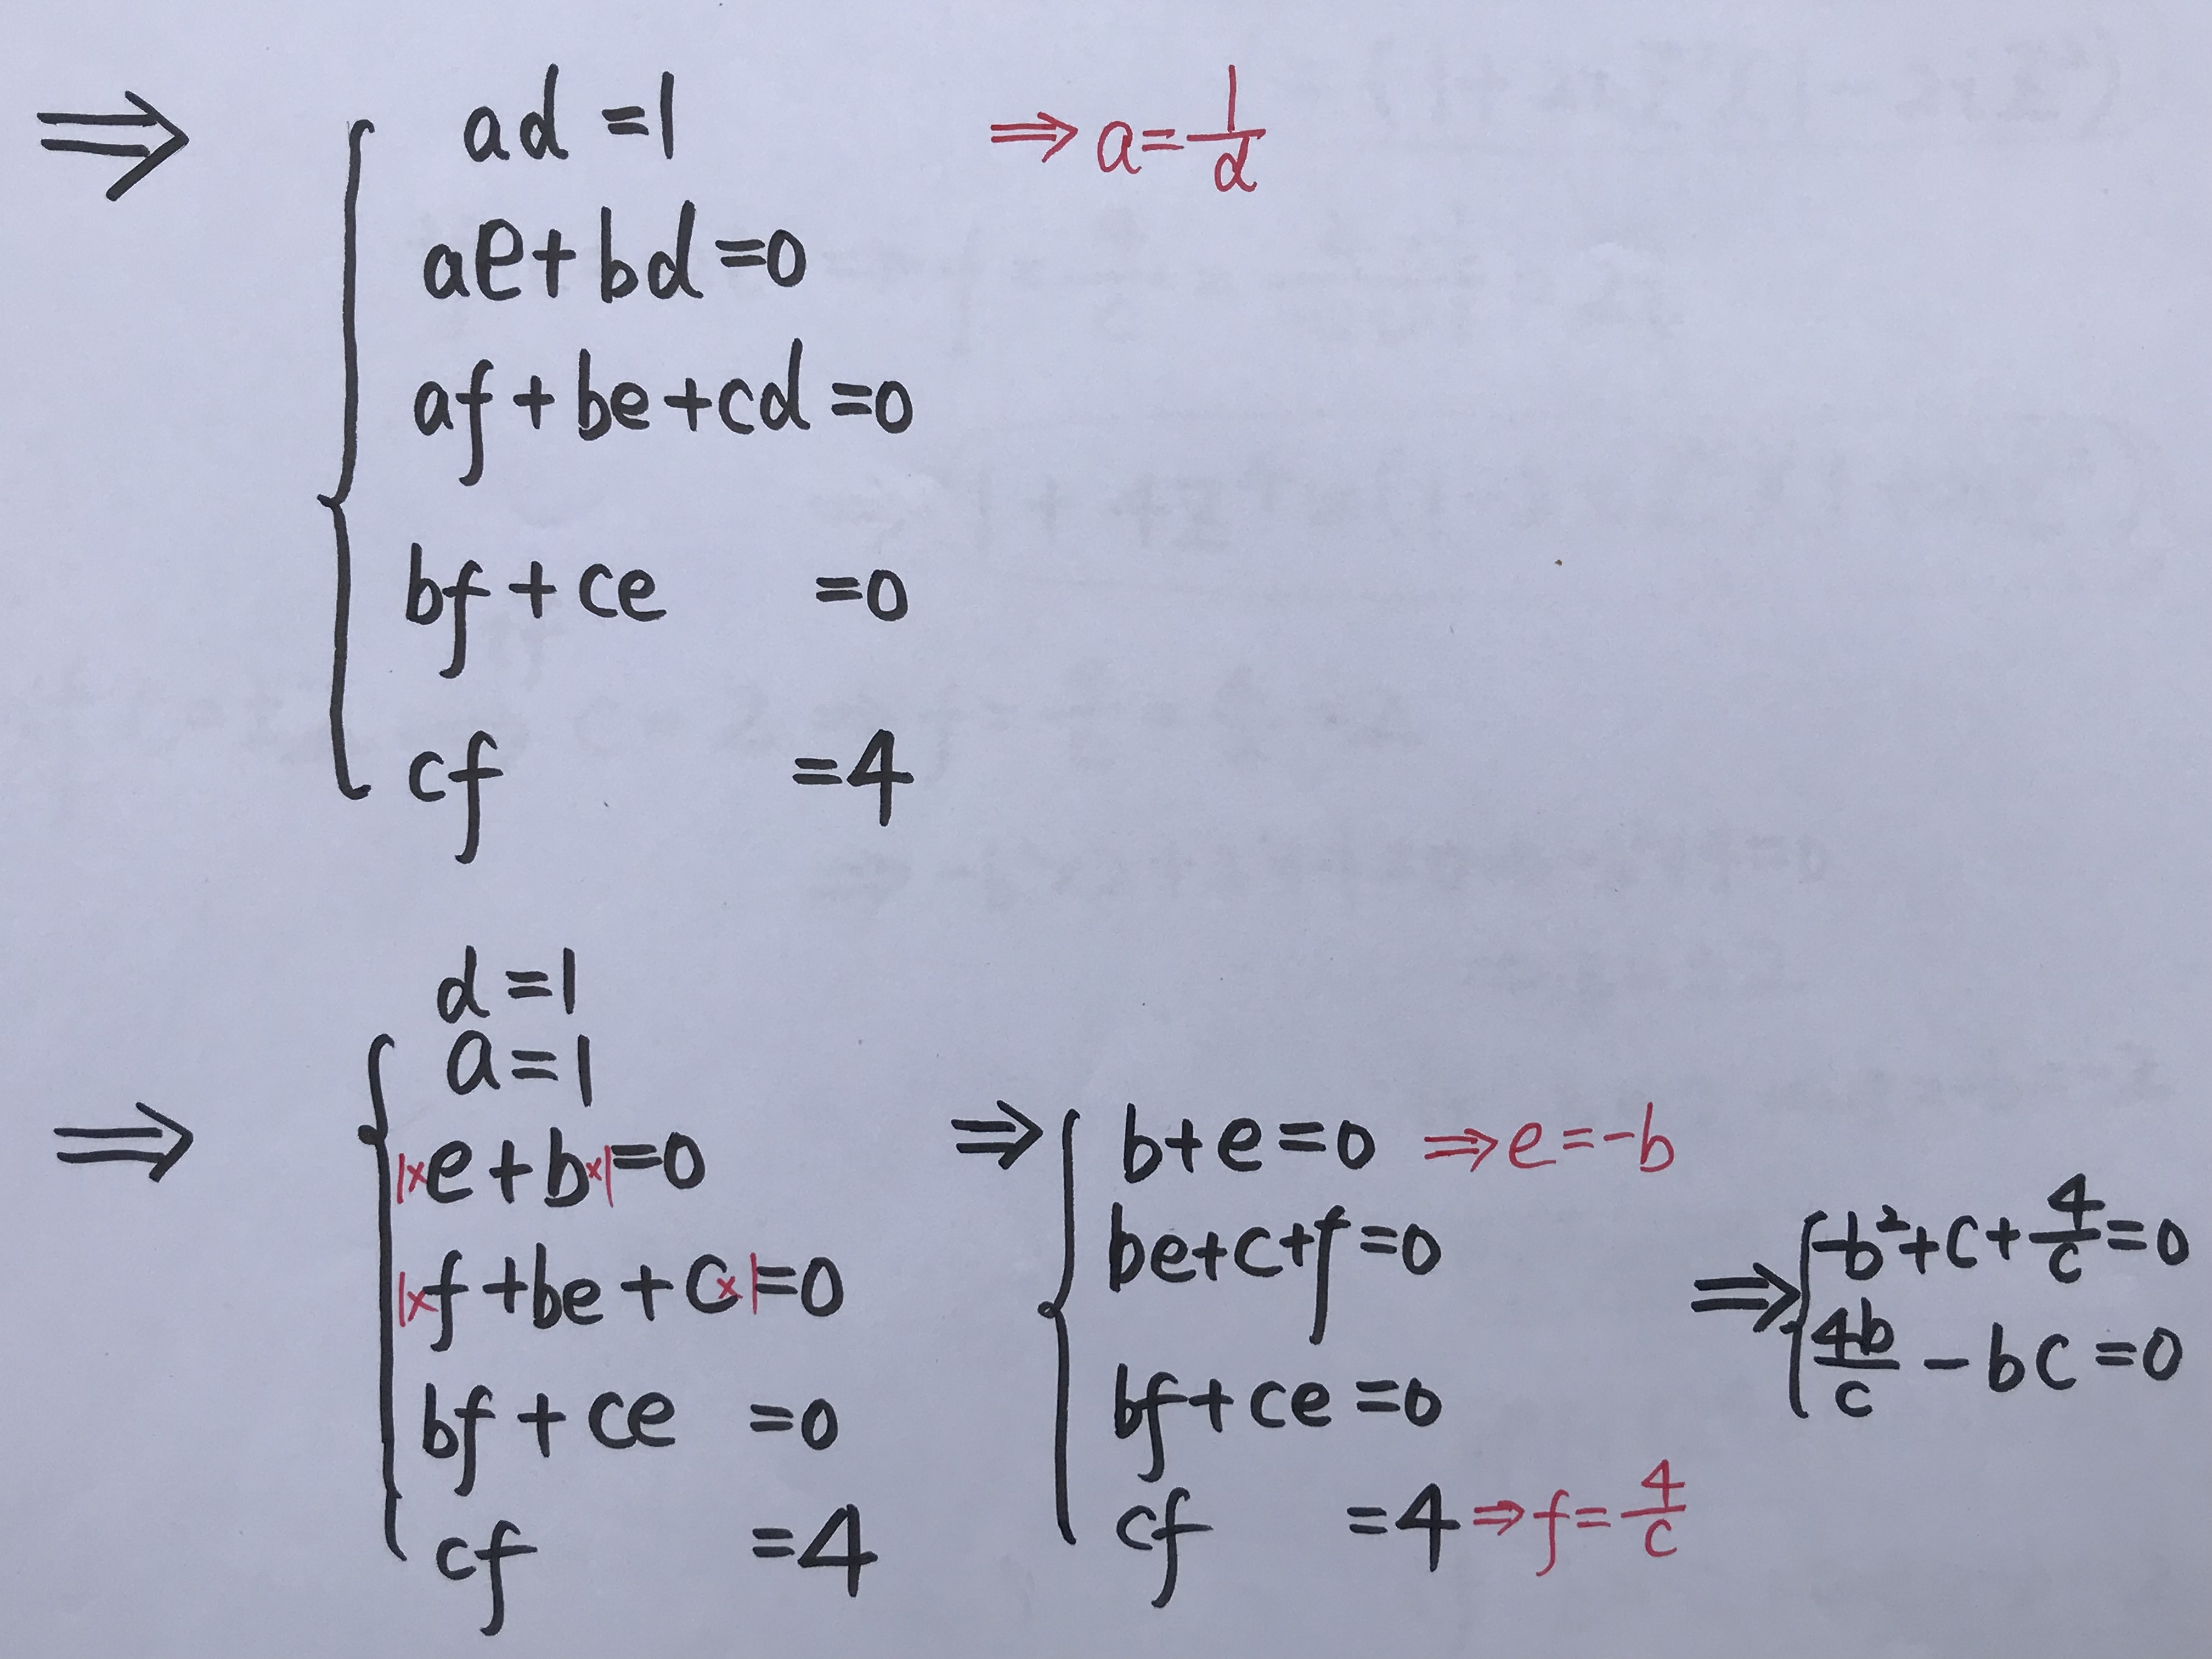 ⇒ { ad =1 ⇒ a = 1/d
ae + bd = 0
af + be + cd = 0
bf + ce = 0
cf = 4
d = 1
⇒ { a = 1
1× e + b ×1 = 0
1× f + be + c ×1 = 0
bf + ce = 0
cf = 4
⇒ { b + e = 0 ⇒ e = -b
be + c + f = 0
bf + ce = 0
cf = 4 ⇒ f = 4/c
⇒ { -b² + c + 4/c = 0
4b/c - bc = 0